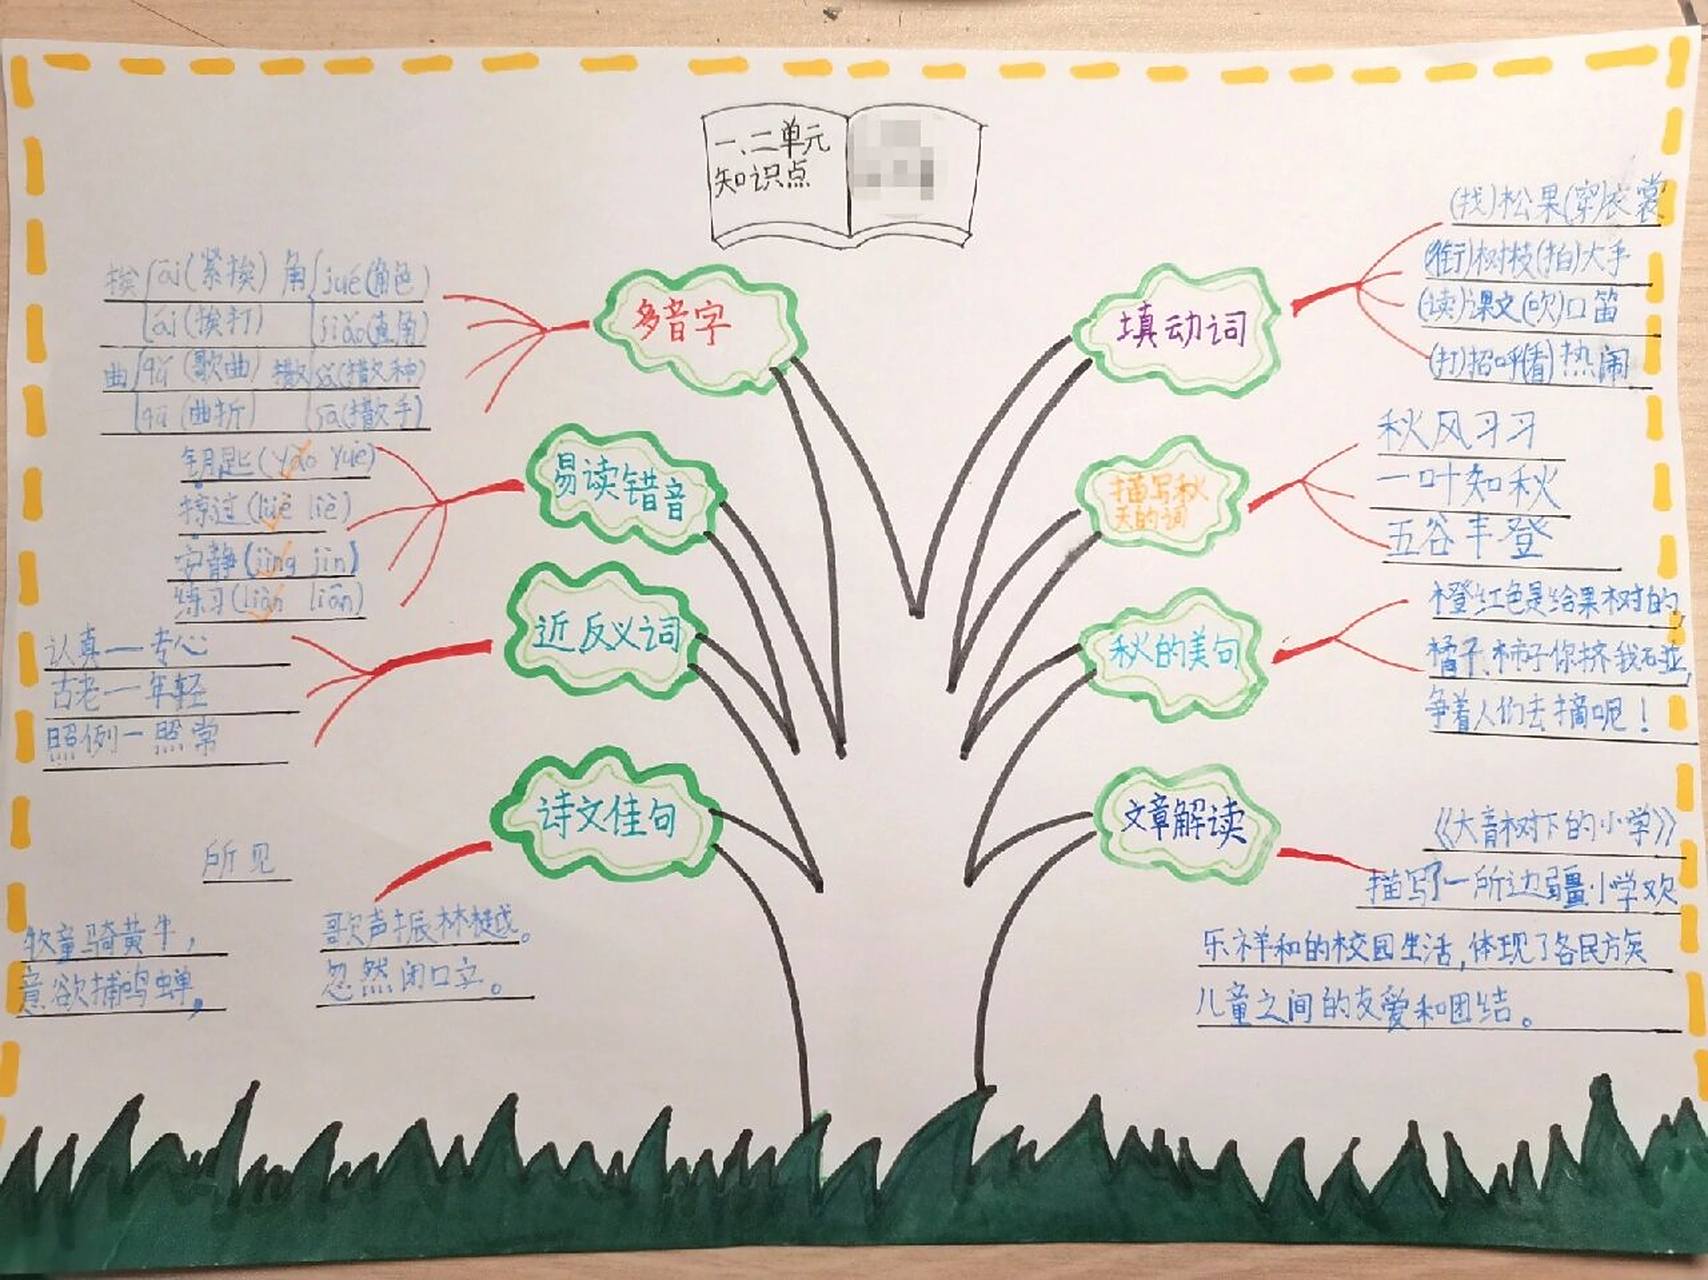 一、二单元
知识点
多音字
挨{āi(紧挨) 角{jué(角色)
{ái(挨打) {jiǎo(直角)
曲{qǔ(歌曲) 撒{sǎ(撒种)
{qū(曲折) {sā(撒手)
易读错音
钥匙(yào yuè)
掠过(lüè liè)
安静(jìng jìn)
练习(liàn liān)
近反义词
认真—专心
古老—年轻
照例—照常
诗文佳句
所见
牧童骑黄牛,
意欲捕鸣蝉,
歌声振林樾。
忽然闭口立。
填动词
(找)松果(穿)衣裳
(衔)树枝(拍)大手
(读)课文(吹)口笛
(打)招呼(看)热闹
描写秋
天的词
秋风习习
一叶知秋
五谷丰登
秋的美句
橙红色是给果树的,
橘子、柿子你挤我碰,
争着人们去摘呢！
文章解读
《大青树下的小学》
描写了一所边疆小学欢
乐祥和的校园生活,体现了各民族
儿童之间的友爱和团结。